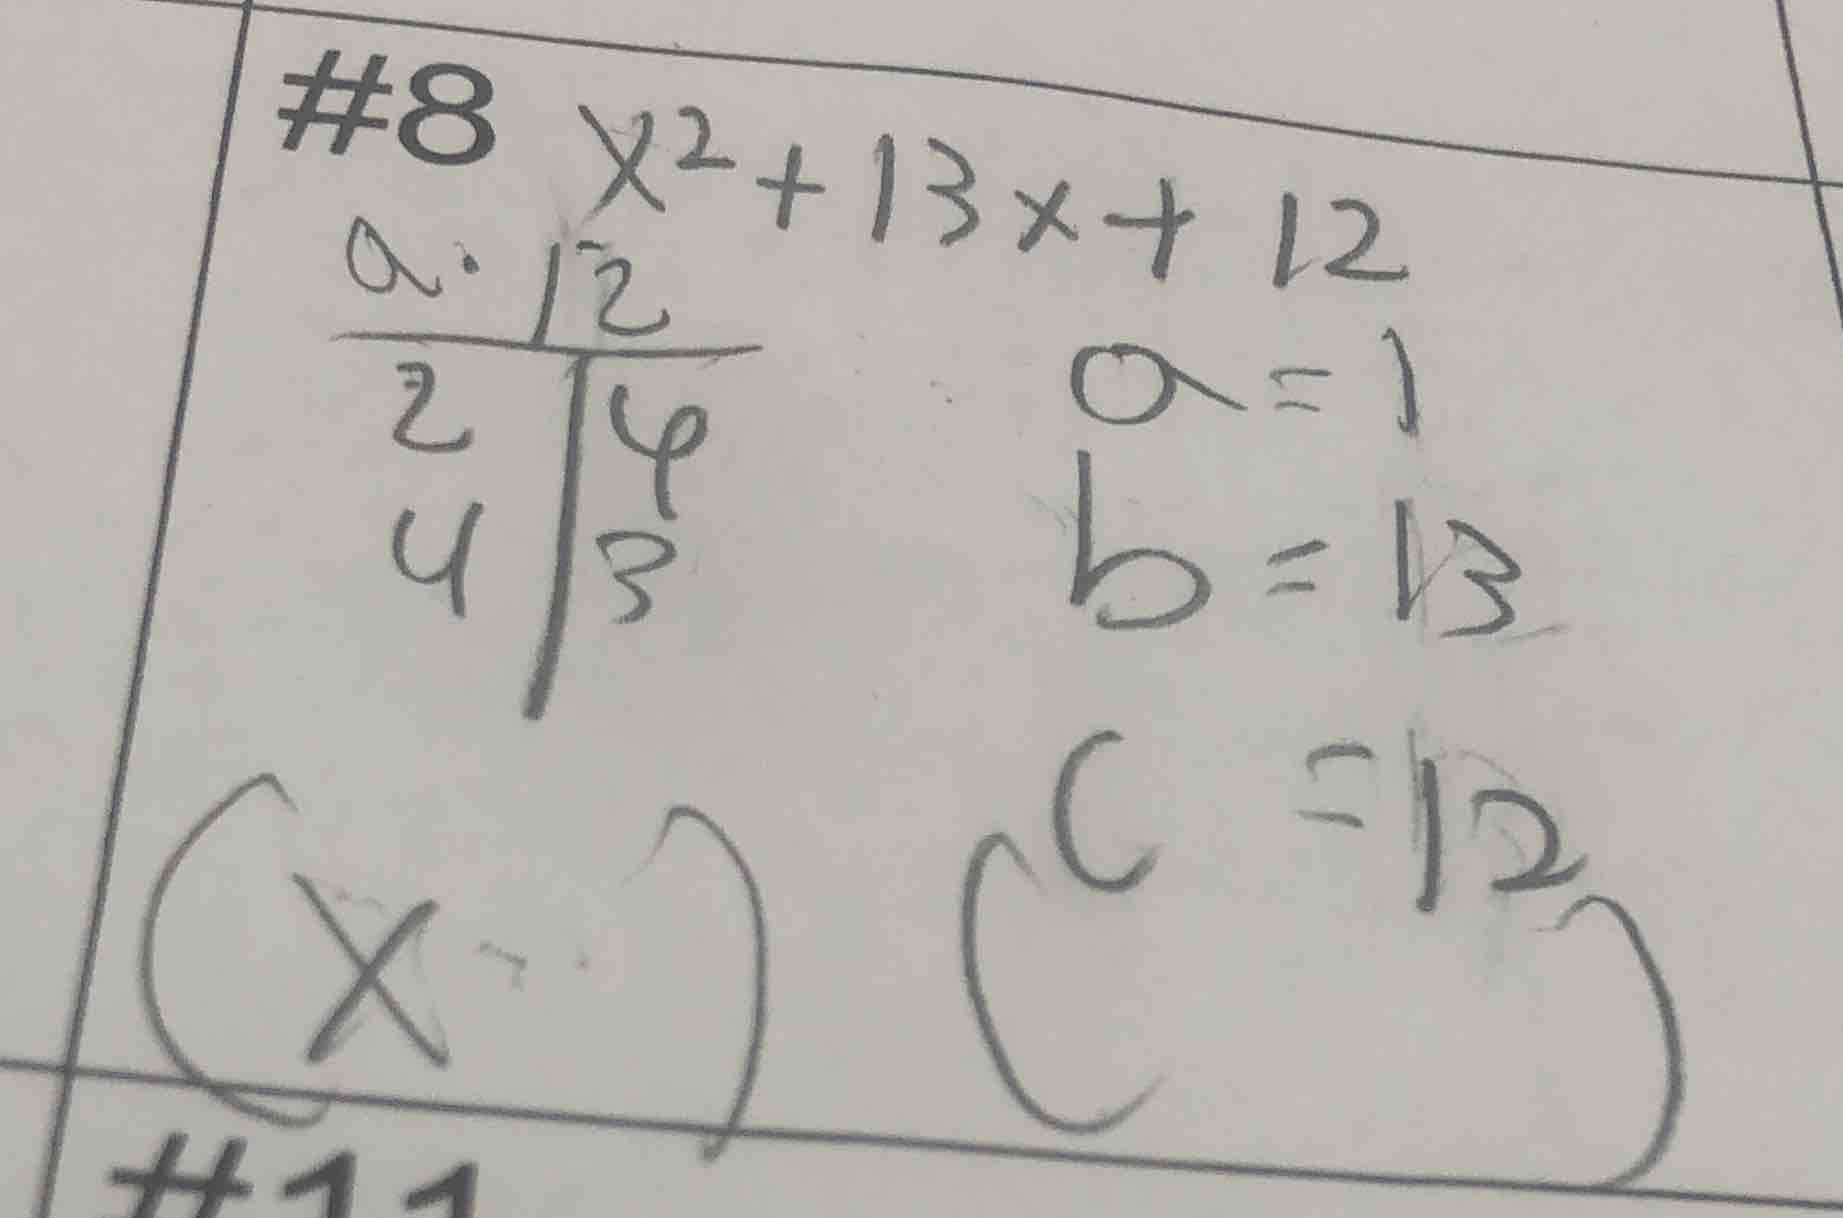 #8 x² + 13x + 12
a · 12
2 | 6
4 | 3
a = 1
b = 13
c = 12
(x - ) ( )
#11